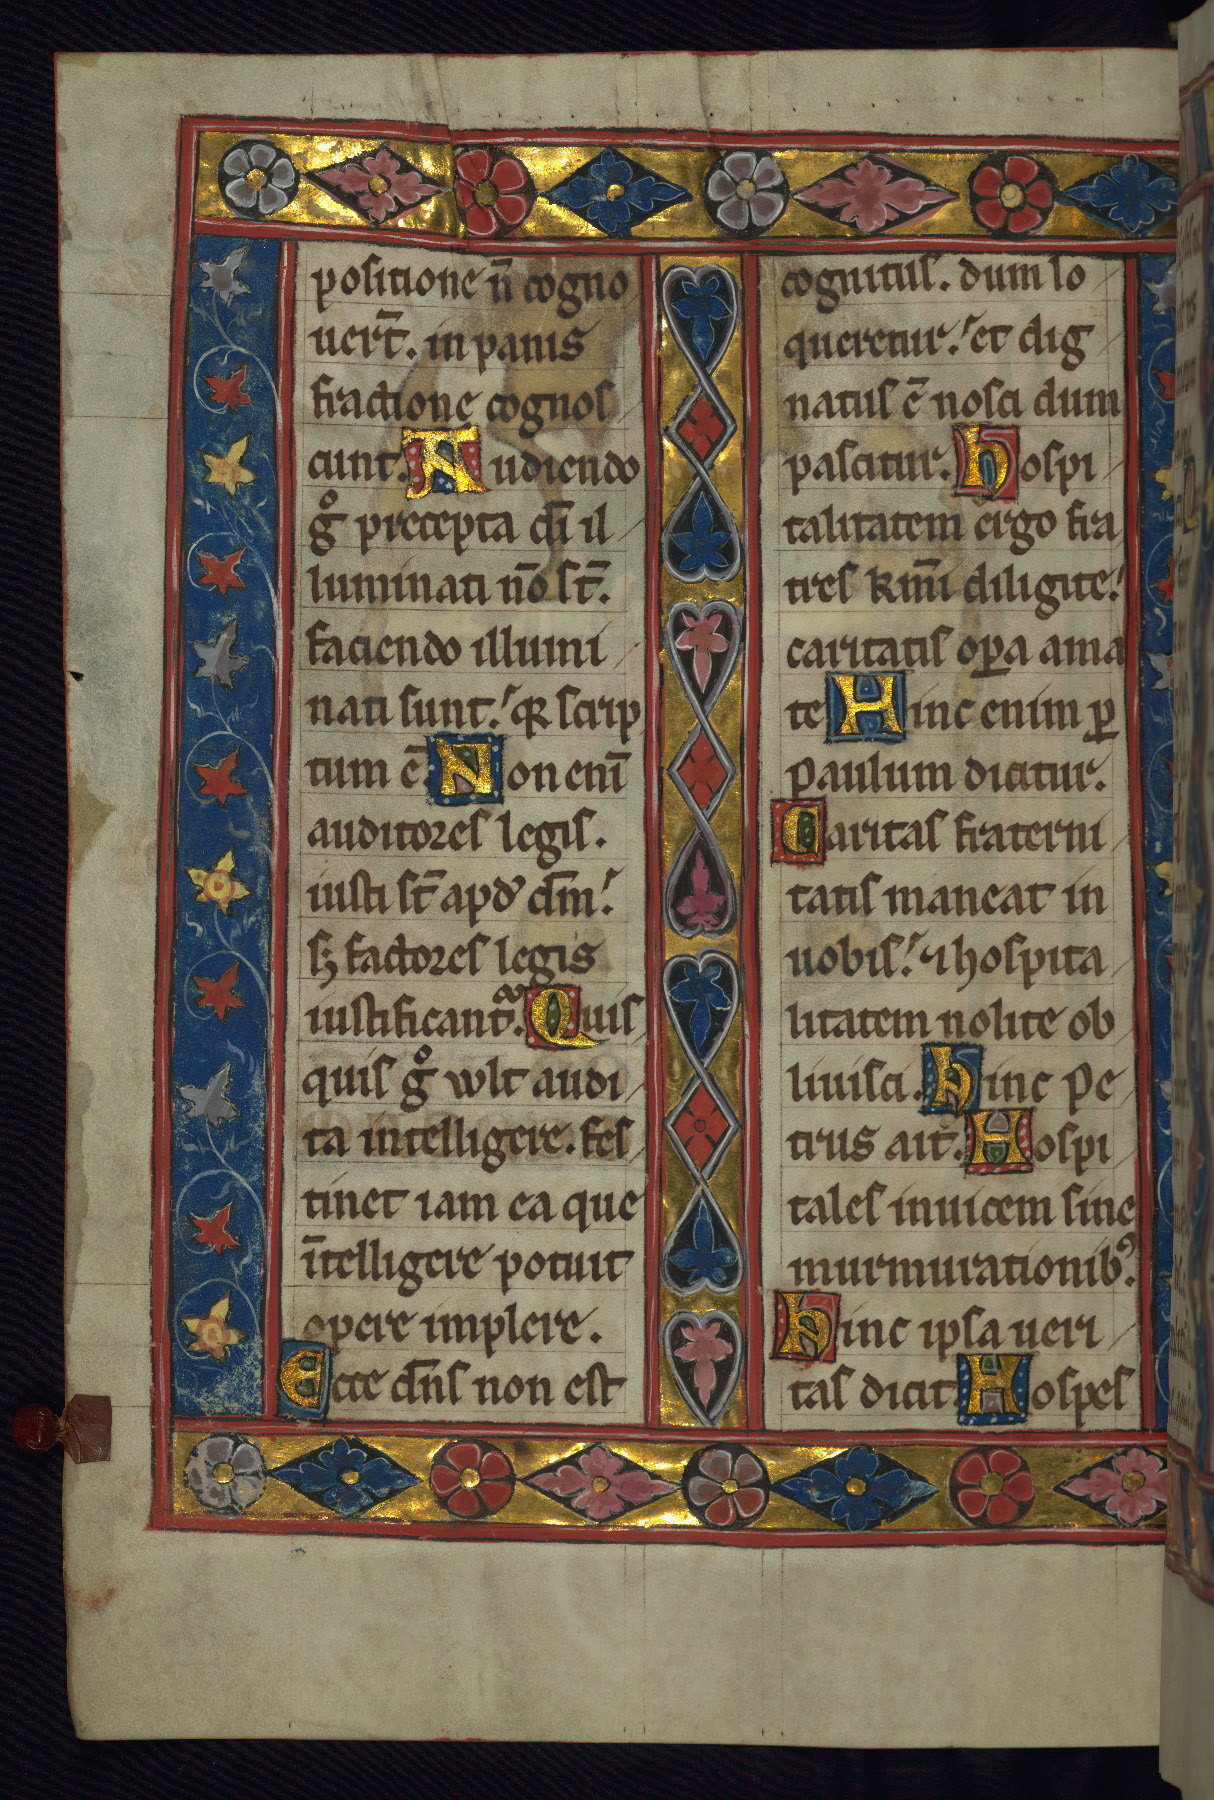 positione n̄ cogno
uert̄. in panis
fractione cognos
cunt. Audiendo
gͦ precepta dī il
luminati nō st̄.
faciendo illumi
nati sunt. qꝛ scrip
tum ē Non enī
auditores legis.
iusti st̄ apd' dm̄.
sꝫ factores legis
iustificant̄. Quis
quis gͦ wlt audi
ta intelligere. fes
tinet iam ea que
īntelligere potuit
opere implere.
Ecce dn̄s non est
cognitus. dum lo
queretur. et dig
natus ē nosci dum
pascitur. Hospi
talitatem ergo fra
tres km̄i diligite.
caritatis oꝑa ama
te Hinc enim ꝑ
paulum dicitur.
Caritas fraterni
tatis maneat in
uobis. ⁊ hospita
litatem nolite ob
liuisci. Hinc pe
trus ait. Hospi
tales inuicem sine
murmurationibꝰ.
Hinc ipsa ueri
tas dicit. Hospes